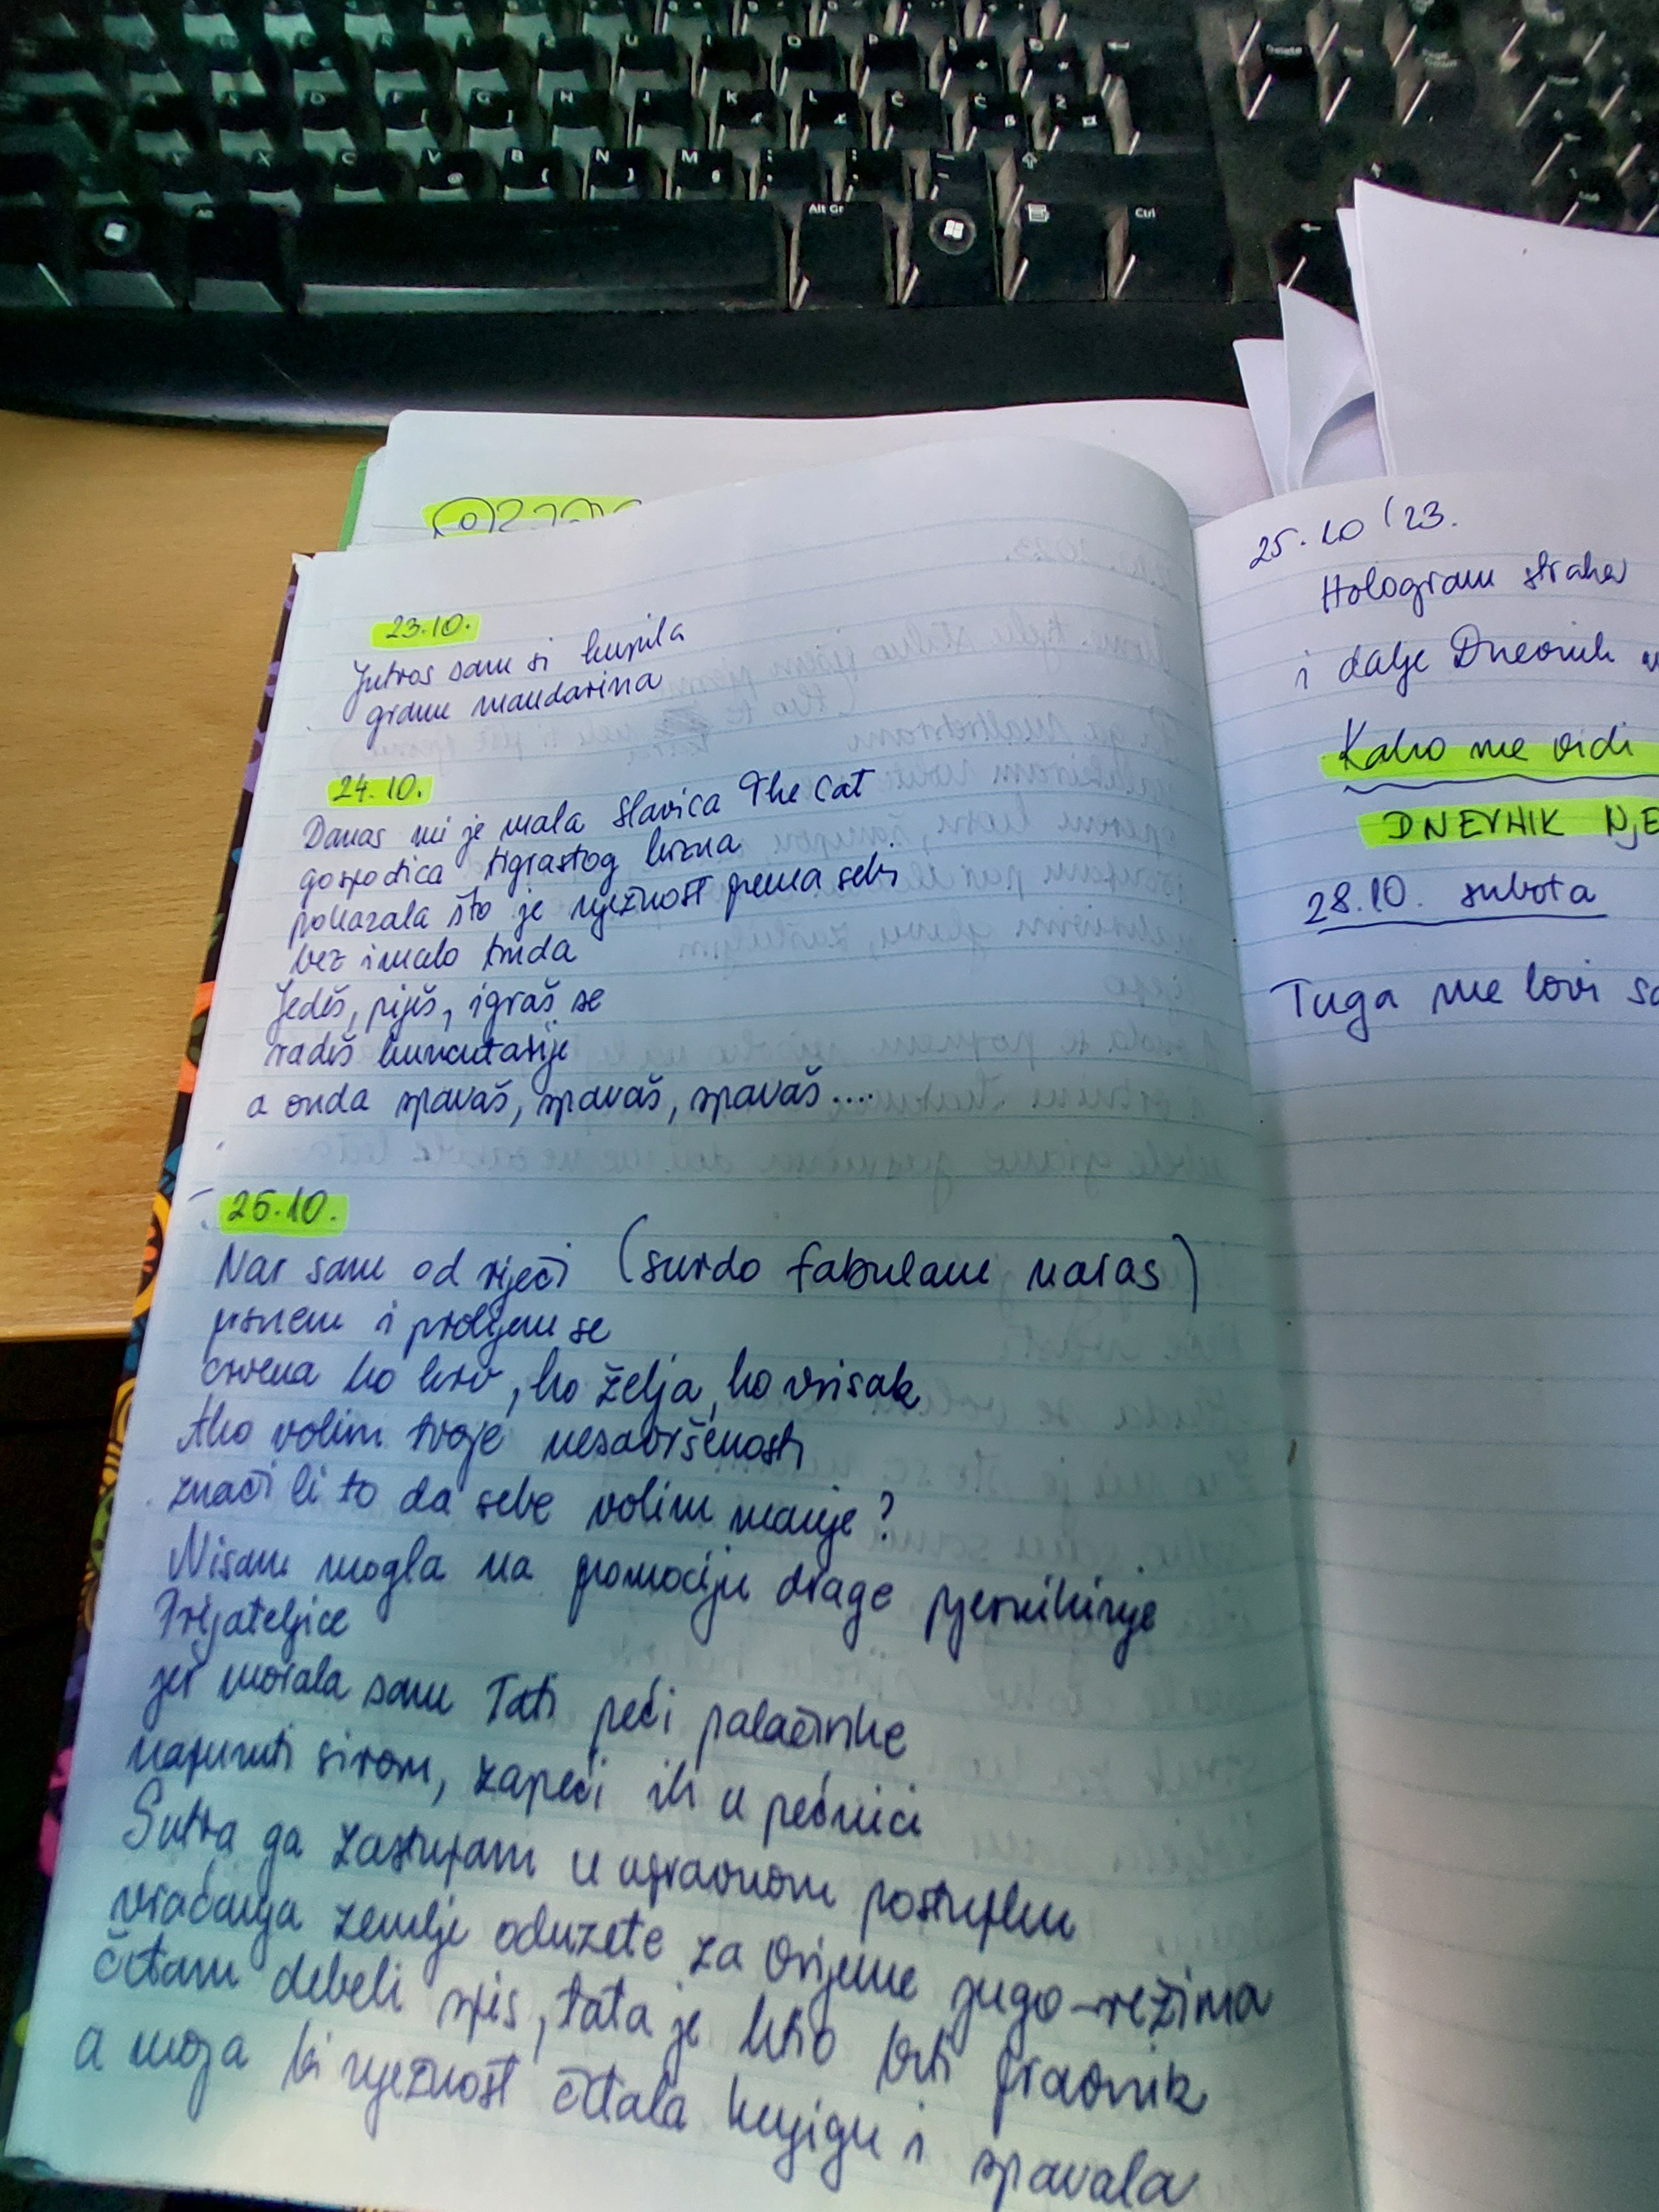 23.10.
Jutros sam si kupila
granu mandarina
24.10.
Danas mi je mala Slavica The Cat
gospođica tigrastog krzna
pokazala što je nježnost prema sebi
bez imalo truda
Jedeš, piješ, igraš se
radiš huncutarije
a onda spavaš, spavaš, spavaš....
25.10.
Nar sam od riječi (surdo fabulam naras)
prsnem i prolijem se
crvena ko krv, ko želja, ko vrisak
Ako volim tvoje nesavršenosti
znači li to da sebe volim manje?
Nisam mogla na promociju drage pjesnikinje
Prijateljice
jer morala sam Tati peći palačinke
napuniti sirom, zapeći ih u pećnici
Sutra ga zastupam u upravnom postupku
vraćanja zemlje oduzete za vrijeme jugo-režima
čitam debeli spis, tata je htio biti pravnik
a moja bi nježnost čitala knjigu i spavala
25.10'23.
Hologram straha
i dalje Dnevnik
Kako me vidi
DNEVNIK NJE
28.10. subota
Tuga me lovi
Delete
Alt Gr
Ctrl